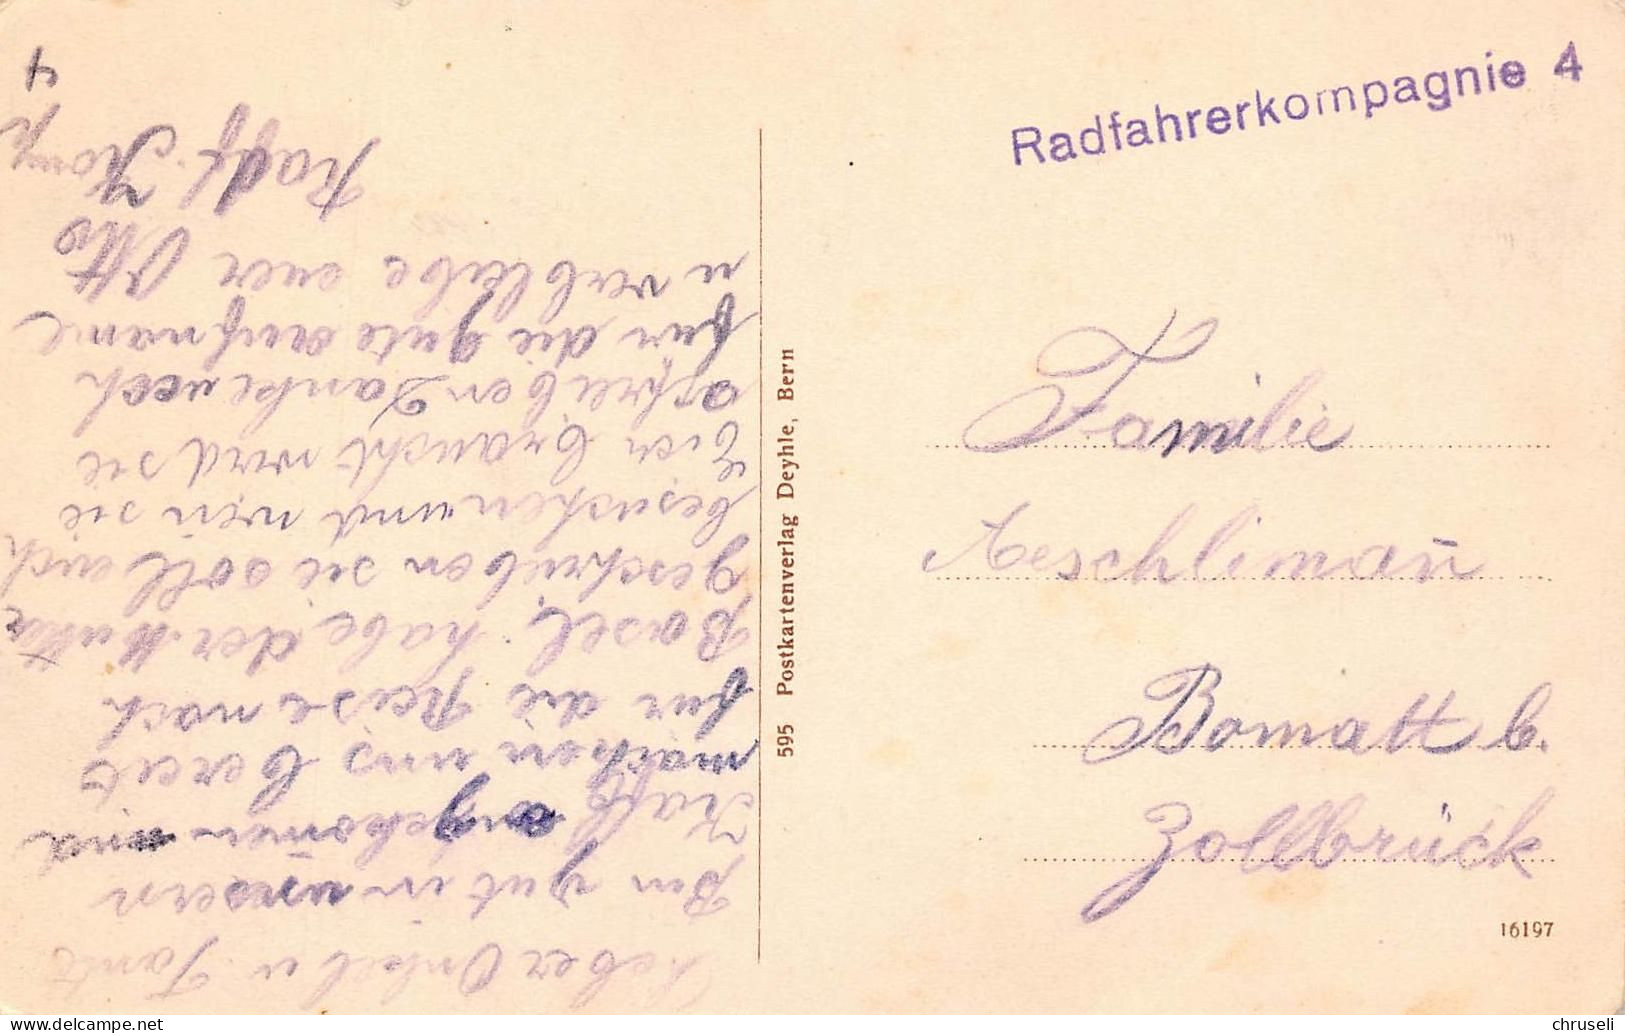 Radfahrerkompagnie 4
Familie
Aeschlimañ
Bomatt b.
Zollbrück
16197
595 Postkartenverlag Deyhle, Bern
Lieber Onkel u Tante
Bin gut in unsern
angekom̄en und
machen uns bereit
für die Reise nach
Basel, habe der Mutter
geschrieben sie soll euch
besuchen und wen sie
Eier braucht wird sie
schreiben Danke noch
für die gute aufname
u verbleibe euer Otto
Radf. Komp
4
chruseli